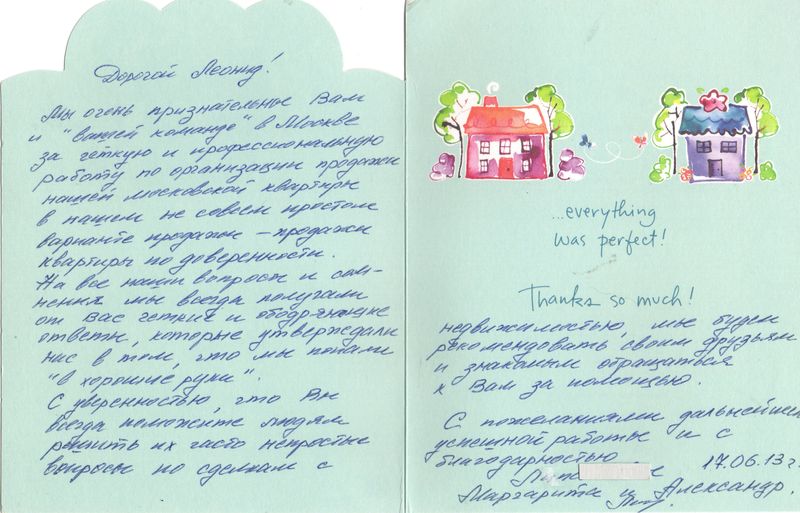 Дорогой Леонид!
Мы очень признательны Вам
и "вашей команде" в Москве
за чёткую и профессиональную
работу по организации продажи
нашей московской квартиры
в нашем не совсем простом
варианте продажи – продажи
квартиры по доверенности.
На все наши вопросы и сом-
нения мы всегда получали
от Вас четкие и ободряющие
ответы, которые утверждали
нас в том, что мы попали
"в хорошие руки".
С уверенностью, что Вы
всегда поможете людям
решить их часто непростые
вопросы по сделкам с
...everything
was perfect!
Thanks so much!
недвижимостью, мы будем
рекомендовать своим друзьям
и знакомым обращаться
к Вам за помощью.
С пожеланиями дальнейшей
успешной работы и с
благодарностью
17.06.13 г.
Маргарита и Александр.